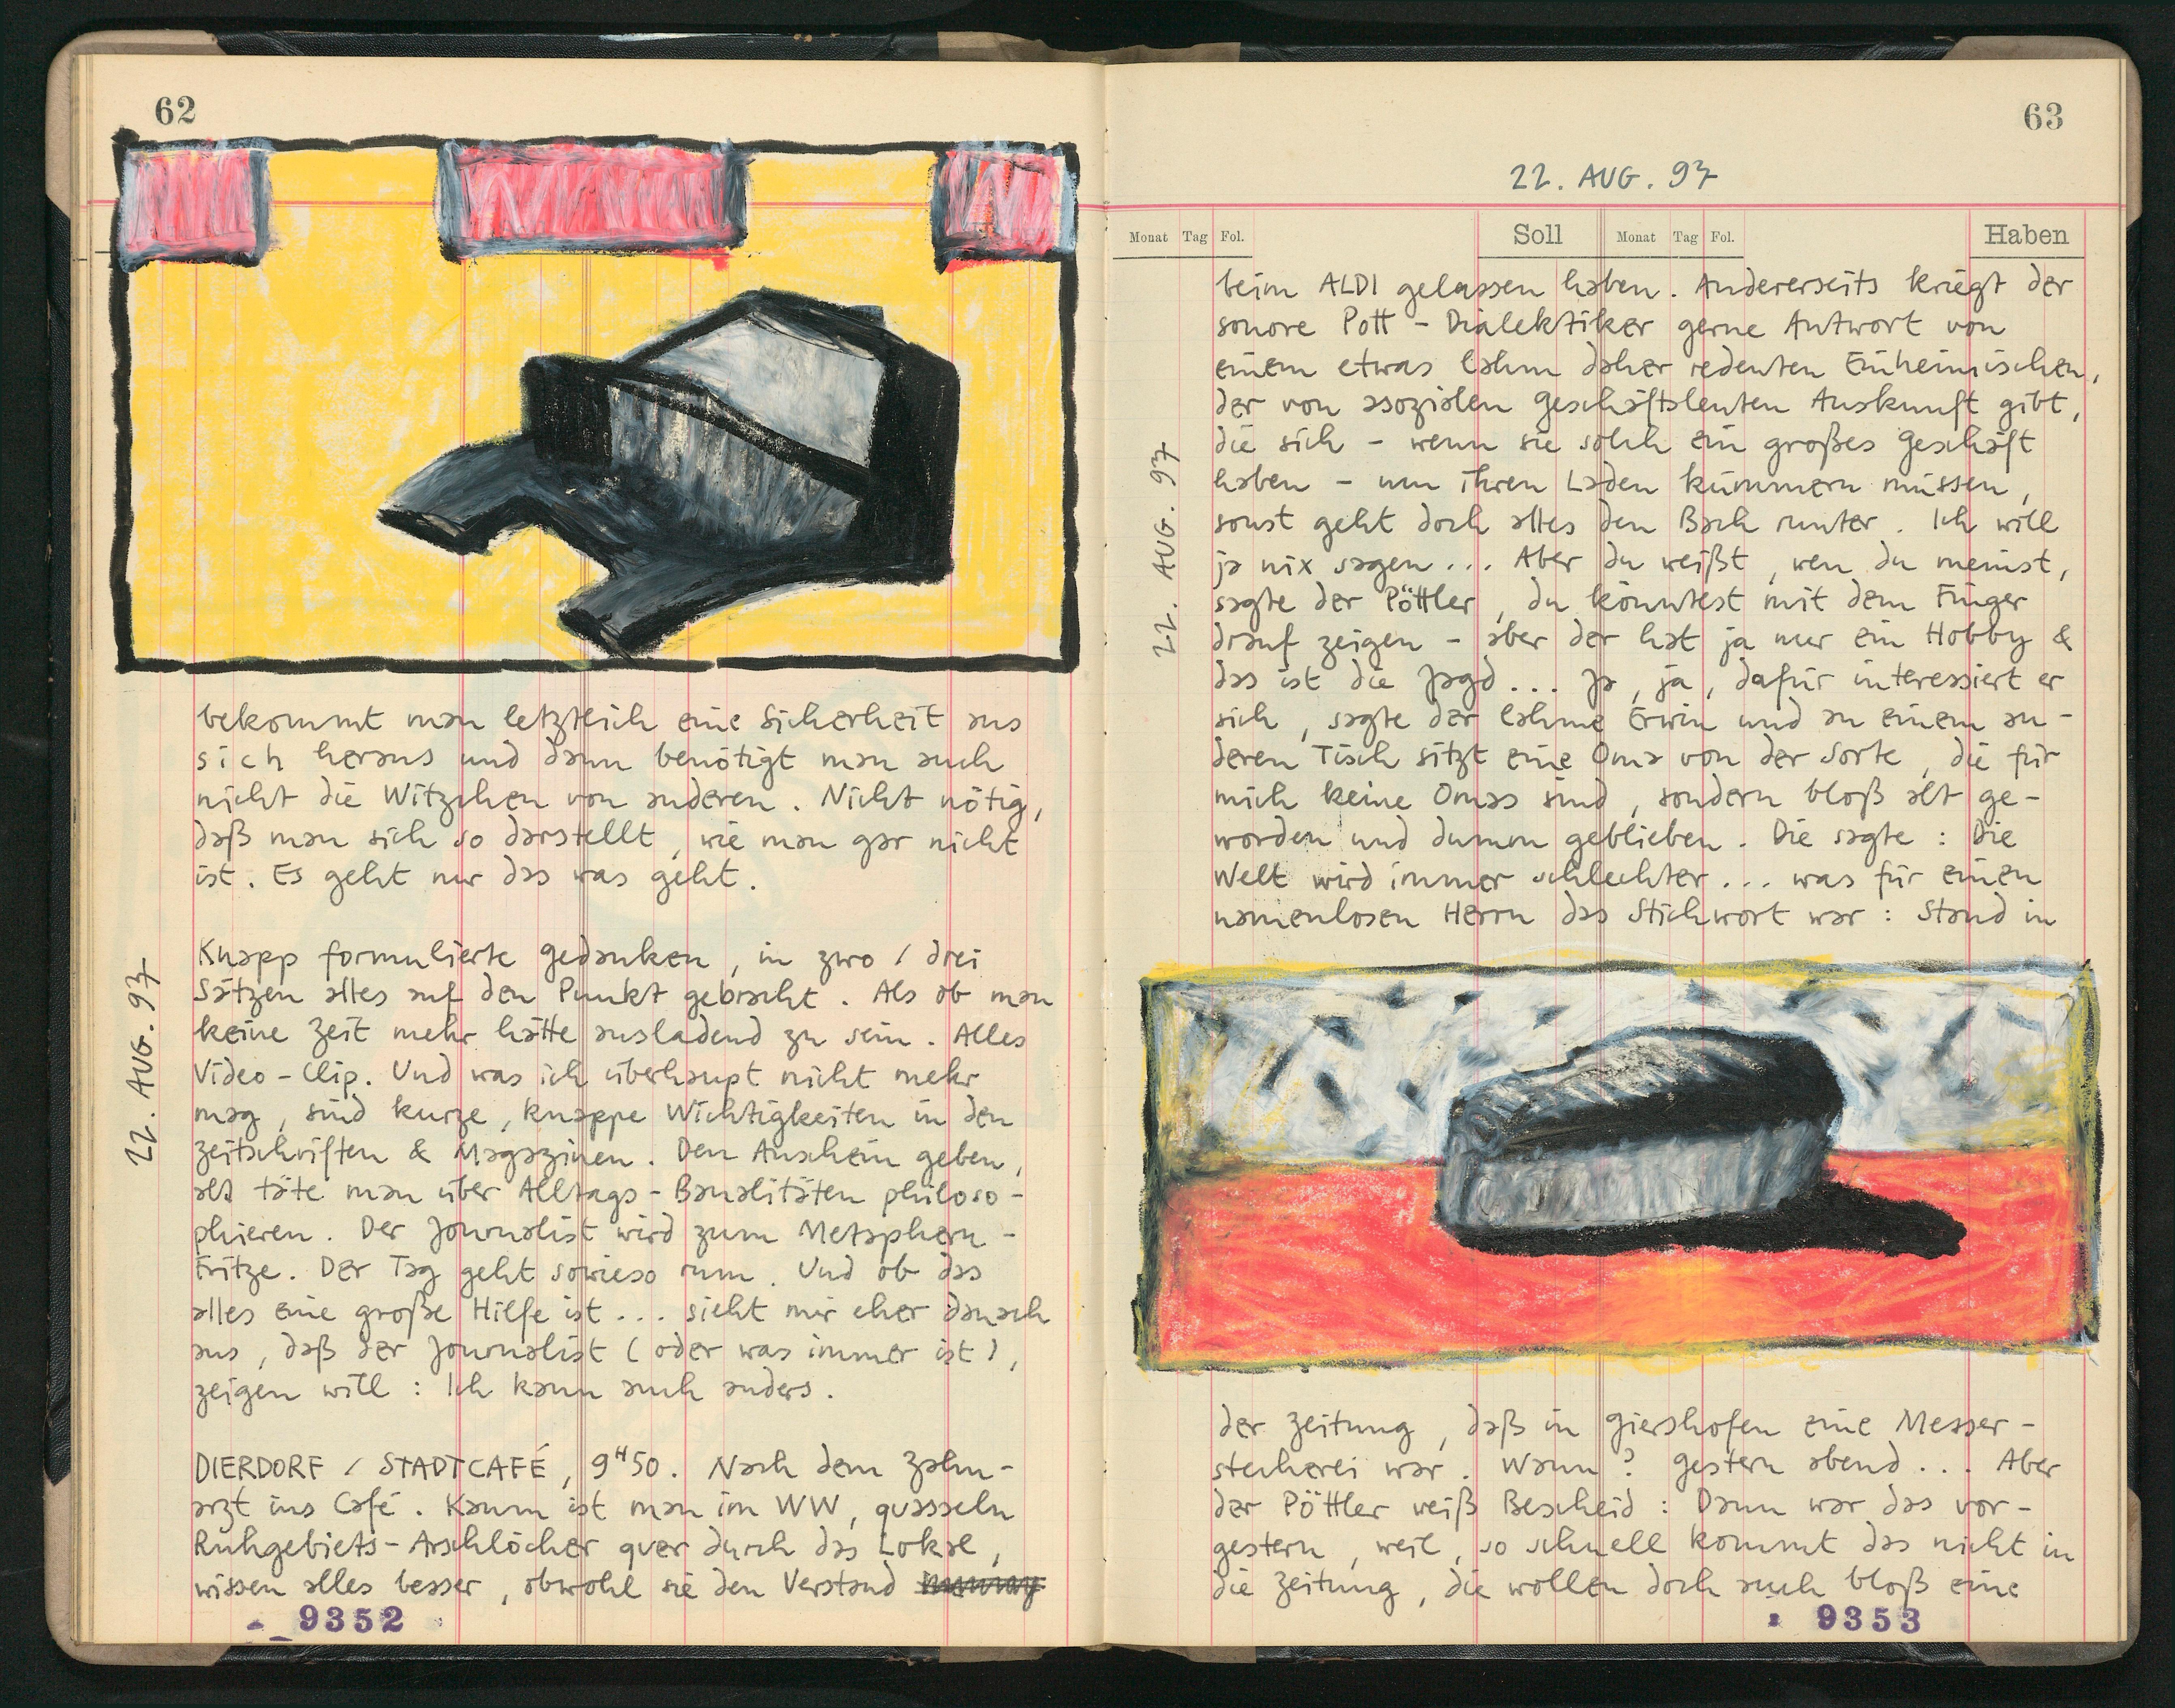 62
bekommt man letztlich eine Sicherheit aus
sich heraus und dann benötigt man auch
nicht die Witzchen von anderen. Nicht nötig,
daß man sich so darstellt, wie man gar nicht
ist. Es geht nur das was geht.
22. AUG. 97
Knapp formulierte Gedanken, in zwo / drei
Sätzen alles auf den Punkt gebracht. Als ob man
keine Zeit mehr hätte ausladend zu sein. Alles
Video-Clip. Und was ich überhaupt nicht mehr
mag, sind kurze, knappe Wichtigkeiten in den
Zeitschriften & Magazinen. Den Anschein geben,
als täte man über Alltags-Banalitäten philoso-
phieren. Der Journalist wird zum Metaphern-
Fritze. Der Tag geht sowieso rum. Und ob das
alles eine große Hilfe ist... sieht mir eher danach
aus, daß der Journalist (oder was immer ist),
zeigen will: Ich kann auch anders.
DIERDORF / STADTCAFÉ, 9H50. Nach dem Zahn-
arzt ins Café. Kaum ist man im WW, quasseln
Ruhgebiets-Arschlöcher quer durch das Lokal,
wissen alles besser, obwohl sie den Verstand
9352
63
22. AUG. 97
Monat Tag Fol. Soll Monat Tag Fol. Haben
22. AUG. 97
beim ALDI gelassen haben. Andererseits kriegt der
sonore Pott-Dialektiker gerne Antwort von
einem etwas lahm daher redenten Einheimischen,
der von asozialen Geschäftsleuten Auskunft gibt,
die sich - wenn sie solch ein großes Geschäft
haben - um ihren Laden kümmern müssen,
sonst geht doch alles den Bach runter. Ich will
ja nix sagen... Aber du weißt, wen du meinst,
sagte der Pöttler, du könntest mit dem Finger
drauf zeigen - aber der hat ja nur ein Hobby &
das ist die Jagd... Ja, ja, dafür interessiert er
sich, sagte der lahme Erwin und an einem an-
deren Tisch sitzt eine Oma von der Sorte, die für
mich keine Omas sind, sondern bloß alt ge-
worden und dumm geblieben. Die sagte: Die
Welt wird immer schlechter... was für einen
namenlosen Herrn das Stichwort war: Stand in
der Zeitung, daß in Giershofen eine Messer-
stecherei war. Wann? Gestern abend... Aber
der Pöttler weiß Bescheid: Dann war das vor-
gestern, weil, so schnell kommt das nicht in
die Zeitung, die wollen doch auch bloß eine
9353